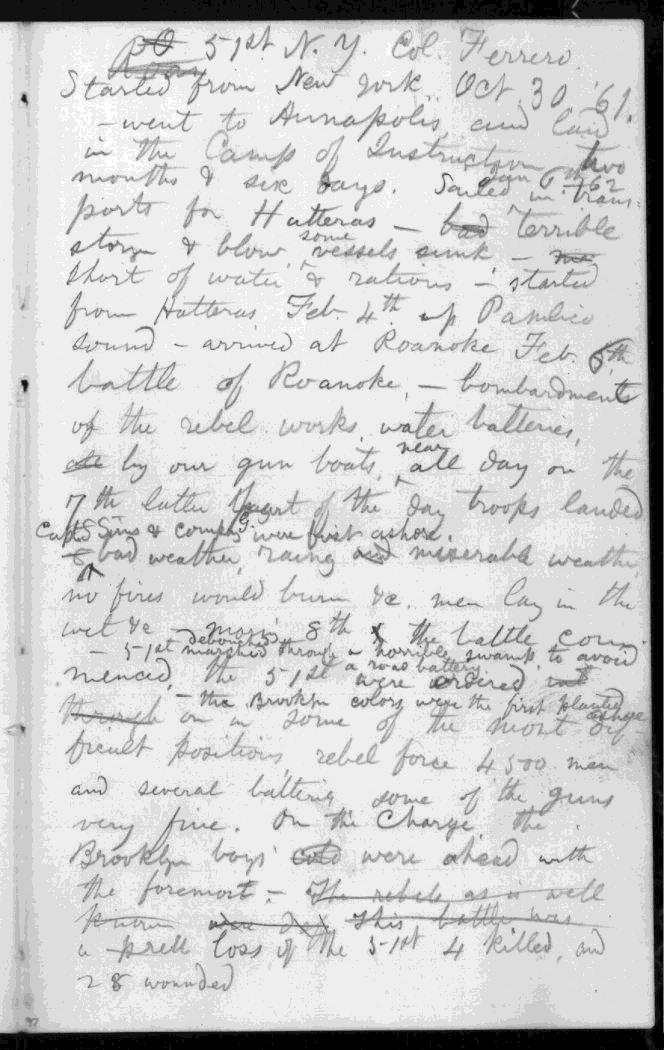 51st N. Y. Col. Ferrero.
Started from New York, Oct. 30 '61.
– went to Annapolis, and laid
in the Camp of Instruction two
months & six days. Sailed in trans-
Jan 6th '62
ports for Hatteras – bad terrible
storm & blow some vessels sunk –
short of water & rations – started
from Hatteras Feb. 4th up Pamlico
sound – arrived at Roanoke Feb. 6th
battle of Roanoke, – bombardments
of the rebel works, water batteries,
by our gun boats, near all day on the
7th latter part of the day troops landed
Capt Sims & company G. were first ashore.
& bad weather, raing and miserable weather,
no fires would burn &c. men lay in the
wet &c – morn'g 8th the battle com-
– 51st debouched marched through a horrible swamp, to avoid
a road battery
menced, the 51st were ordered
– the Brooklyn colors were the first planted ashore
through on in some of the most dif-
ficult positions, rebel force 4500 men
and several batteries, some of the guns
very fine. On the Charge, the
Brooklyn boys were ahead with
the foremost. – The rebels, as is well
known were This battle was
a loss of the 51st 4 killed, and
28 wounded